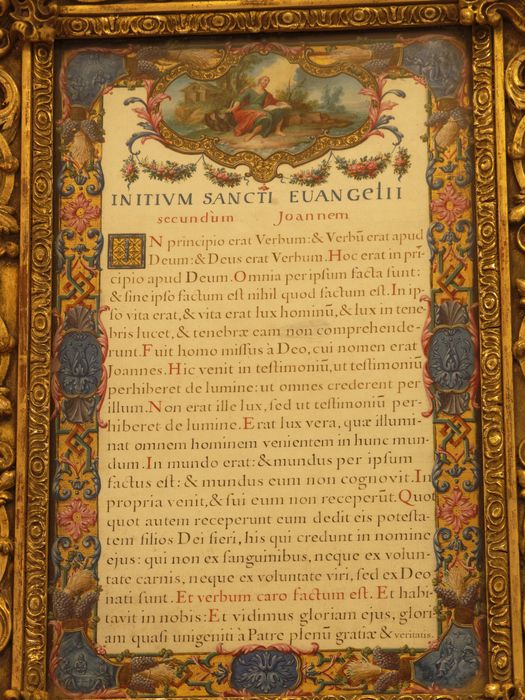 INITIVM SANCTI EVANGELII
secundùm Joannem
IN principio erat Verbum: & Verbũ erat apud
Deum: & Deus erat Verbum. Hoc erat in prĩ
cipio apud Deum. Omnia per ipsum facta sunt:
& sine ipso factum est nihil quod factum est. In ip-
so vita erat, & vita erat lux hominũ, & lux in tene
bris lucet, & tenebræ eam non comprehende-
runt. Fuit homo missus à Deo, cui nomen erat
Joannes. Hic venit in testimoniũ, ut testimoniũ
perhiberet de lumine: ut omnes crederent per
illum. Non erat ille lux, sed ut testimoniũ per-
hiberet de lumine. Erat lux vera, quæ illumi-
nat omnem hominem venientem in hunc mun-
dum. In mundo erat: & mundus per ipsum
factus est: & mundus eum non cognovit. In
propria venit, & sui eum non receperũt. Quot
quot autem receperunt eum dedit eis potesta-
tem filios Dei fieri, his qui credunt in nomine
ejus: qui non ex sanguinibus, neque ex volun-
tate carnis, neque ex voluntate viri, sed ex Deo
nati sunt. Et verbum caro factum est. Et habi-
tavit in nobis: Et vidimus gloriam ejus, glori
am quasi unigeniti à Patre plenũ gratiæ & veritatis.